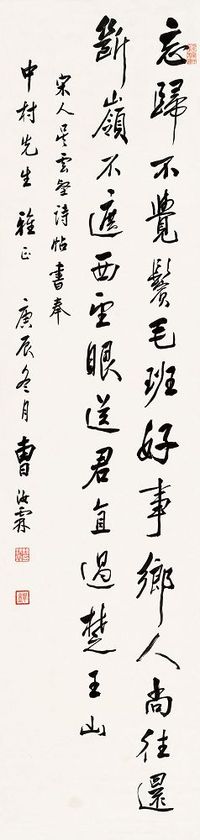 忘歸不覺鬢毛班好事鄉人尚往還
斷嶺不遮西望眼送君直過楚王山
宋人吳雲壑詩帖書奉
中村先生雅正庚辰冬月曹汝霖